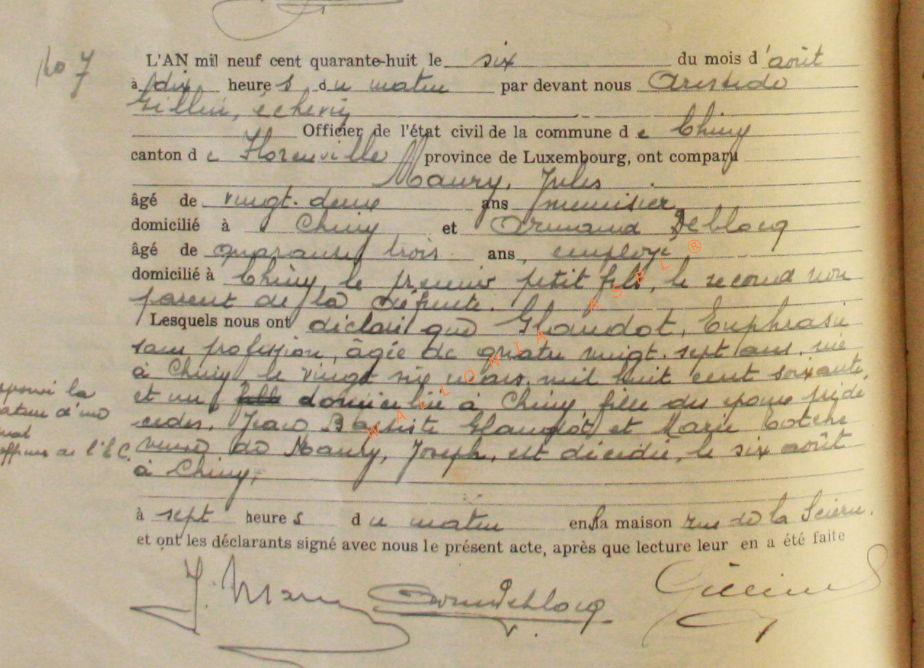 No 7
L'AN mil neuf cent quarante-huit le six du mois d'août
à dix heures du matin par devant nous Aristide
Gillin, échevin
Officier de l'état civil de la commune de Chiny
canton de Florenville province de Luxembourg, ont comparu
Maury, Jules
âgé de vingt-deux ans menuisier
domicilié à Chiny et Armand Deblocq
âgé de quarante trois ans, employé
domicilié à Chiny le premier petit fils, le second non
parent de la défunte.
Lesquels nous ont déclaré que Glaudot, Euphrasie
sans profession, âgée de quatre vingt-sept ans, née
à Chiny le vingt six mars mil huit cent soixante
et un domiciliée à Chiny fille des époux prédé
cédés, Jean Baptiste Glaudot, et Marie
veuve de Maury, Joseph, est décédée, le six août
à Chiny,
à sept heures du matin en sa maison rue de la Scierie.
et ont les déclarants signé avec nous le présent acte, après que lecture leur en a été faite
la
d'un
mot
de l'E.C.
J. Maury Deblocq
WALLONIA ASBL ®